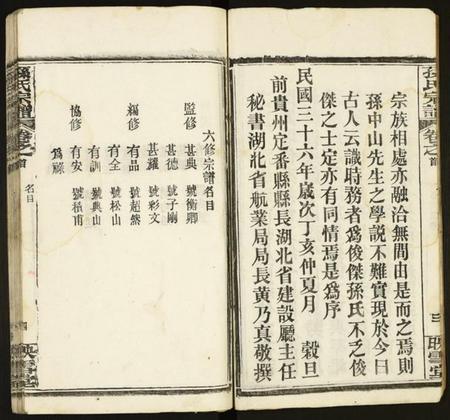 孫氏宗譜 卷之首
三 映雪堂
宗族相處亦融洽無間由是而之焉則
孫中山先生之學說不難實現於今日
古人云識時務者爲俊傑孫氏不乏俊
傑之士定亦有同情焉是爲序
民國三十六年歲次丁亥仲夏月 穀旦
前貴州定番縣縣長湖北省建設廳主任
秘書湖北省航業局局長黃乃真敬撰
六修宗譜名目
監修 甚典 號衡卿
甚德 號子剛
甚羅 號彩文
編修 有品 號超然
有全 號松山
有訓 號典山
協修 有安 號積甫
爲藤
孫氏宗譜 卷之首 名目
四 映雪堂